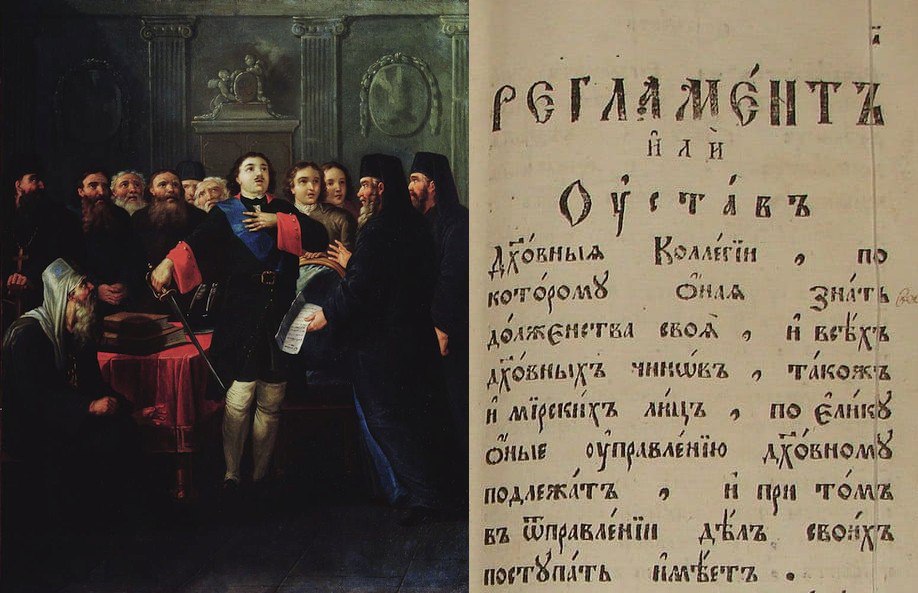 а҃
РЕГЛАМЕ́НТЪ
и҆лѝ
Оу҆ста́въ
дх҃о́вныѧ Коллегїи , по
кото́рому ѻ҆наѧ зна́ть
до́лженства своѧ̀ , и҆ всѣ́хъ
дх҃о́вныхъ чинѡ́въ , та́кожъ
и҆ мїрски́хъ ли́цъ , по є҆ли́кꙋ
ѻ҆ные оу҆правле́нїю дх҃о́вному
подлежа́тъ , и҆ при то́мъ
въ ѿправле́нїи дѣ́лъ свои́хъ
поступа́ть и҆мѣ́етъ .